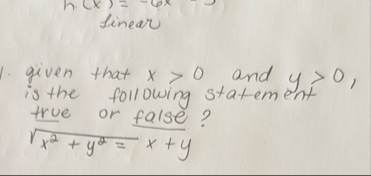 h(x) = -6x - 3
linear
1. given that x > 0 and y > 0,
is the following statement
true or false?
√x² + y² = x + y